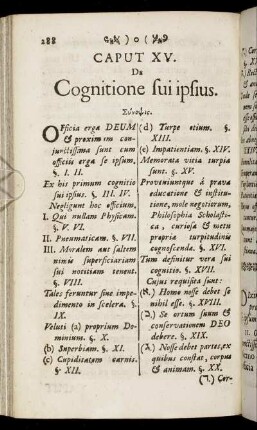 288
CAPUT XV.
De
Cognitione sui ipsius.
Σύνοψις.
Officia erga DEUM
& proximum con-
junctissima sunt cum
officiis erga se ipsum.
§. I. II.
Ex his primum cognitio
sui ipsius. §. III. IV.
Negligunt hoc officium,
I. Qui nullam Physicam.
§. V. VI.
II. Pneumaticam. §. VII.
III. Moralem aut saltem
nimis superficiariam
sui notitiam tenent.
§. VIII.
Tales feruntur sine impe-
dimento in scelera. §.
IX.
Veluti (a) proprium Do-
minium. §. X.
(b) Superbiam. §. XI.
(c) Cupiditatem carnis.
§. XII.
(d) Turpe otium. §.
XIII.
(e) Impatientiam. §. XIV.
Memorata vitia turpia
sunt. §. XV.
Proveniuntque à prava
educatione & institu-
tione, mole negotiorum,
Philosophia Scholasti-
ca, curiosa & metu
propria turpitudinis
cognoscenda. §. XVI.
Tum definitur vera sui
cognitio. §. XVII.
Cujus requisita sunt:
(א.) Homo nosse debet se
nihil esse. §. XVIII.
(ב.) Se ortum suum &
conservationem DEO
debere. §. XIX.
(ג.) Nosse debet partes, ex
quibus constat, corpus
& animam. §. XX.
(ד.) Cer-